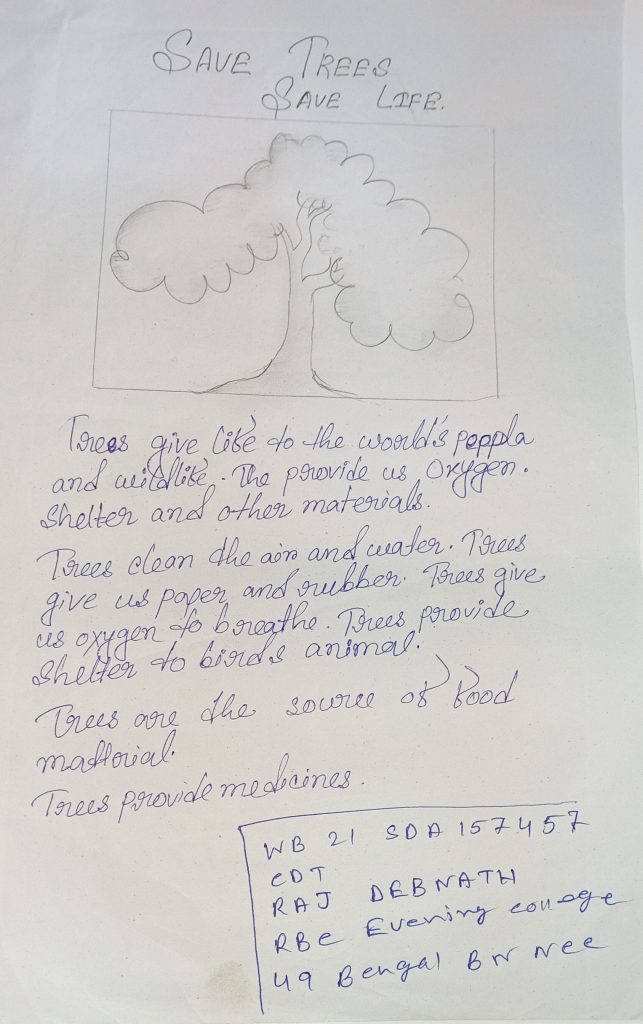 SAVE TREES
SAVE LIFE.
Trees give like to the world's peppla
and wildlike. The provide us Oxygen.
Shelter and other materials.
Trees clean the air and water. Trees
give us paper and rubber. Trees give
us oxygen to breathe. Trees provide
Shelter to birds animal.
Trees are the source of food
matterial.
Trees provide medicines.
WB 21 SDA 157457
CDT
RAJ DEBNATH
RBC Evening college
49 Bengal BN NCC